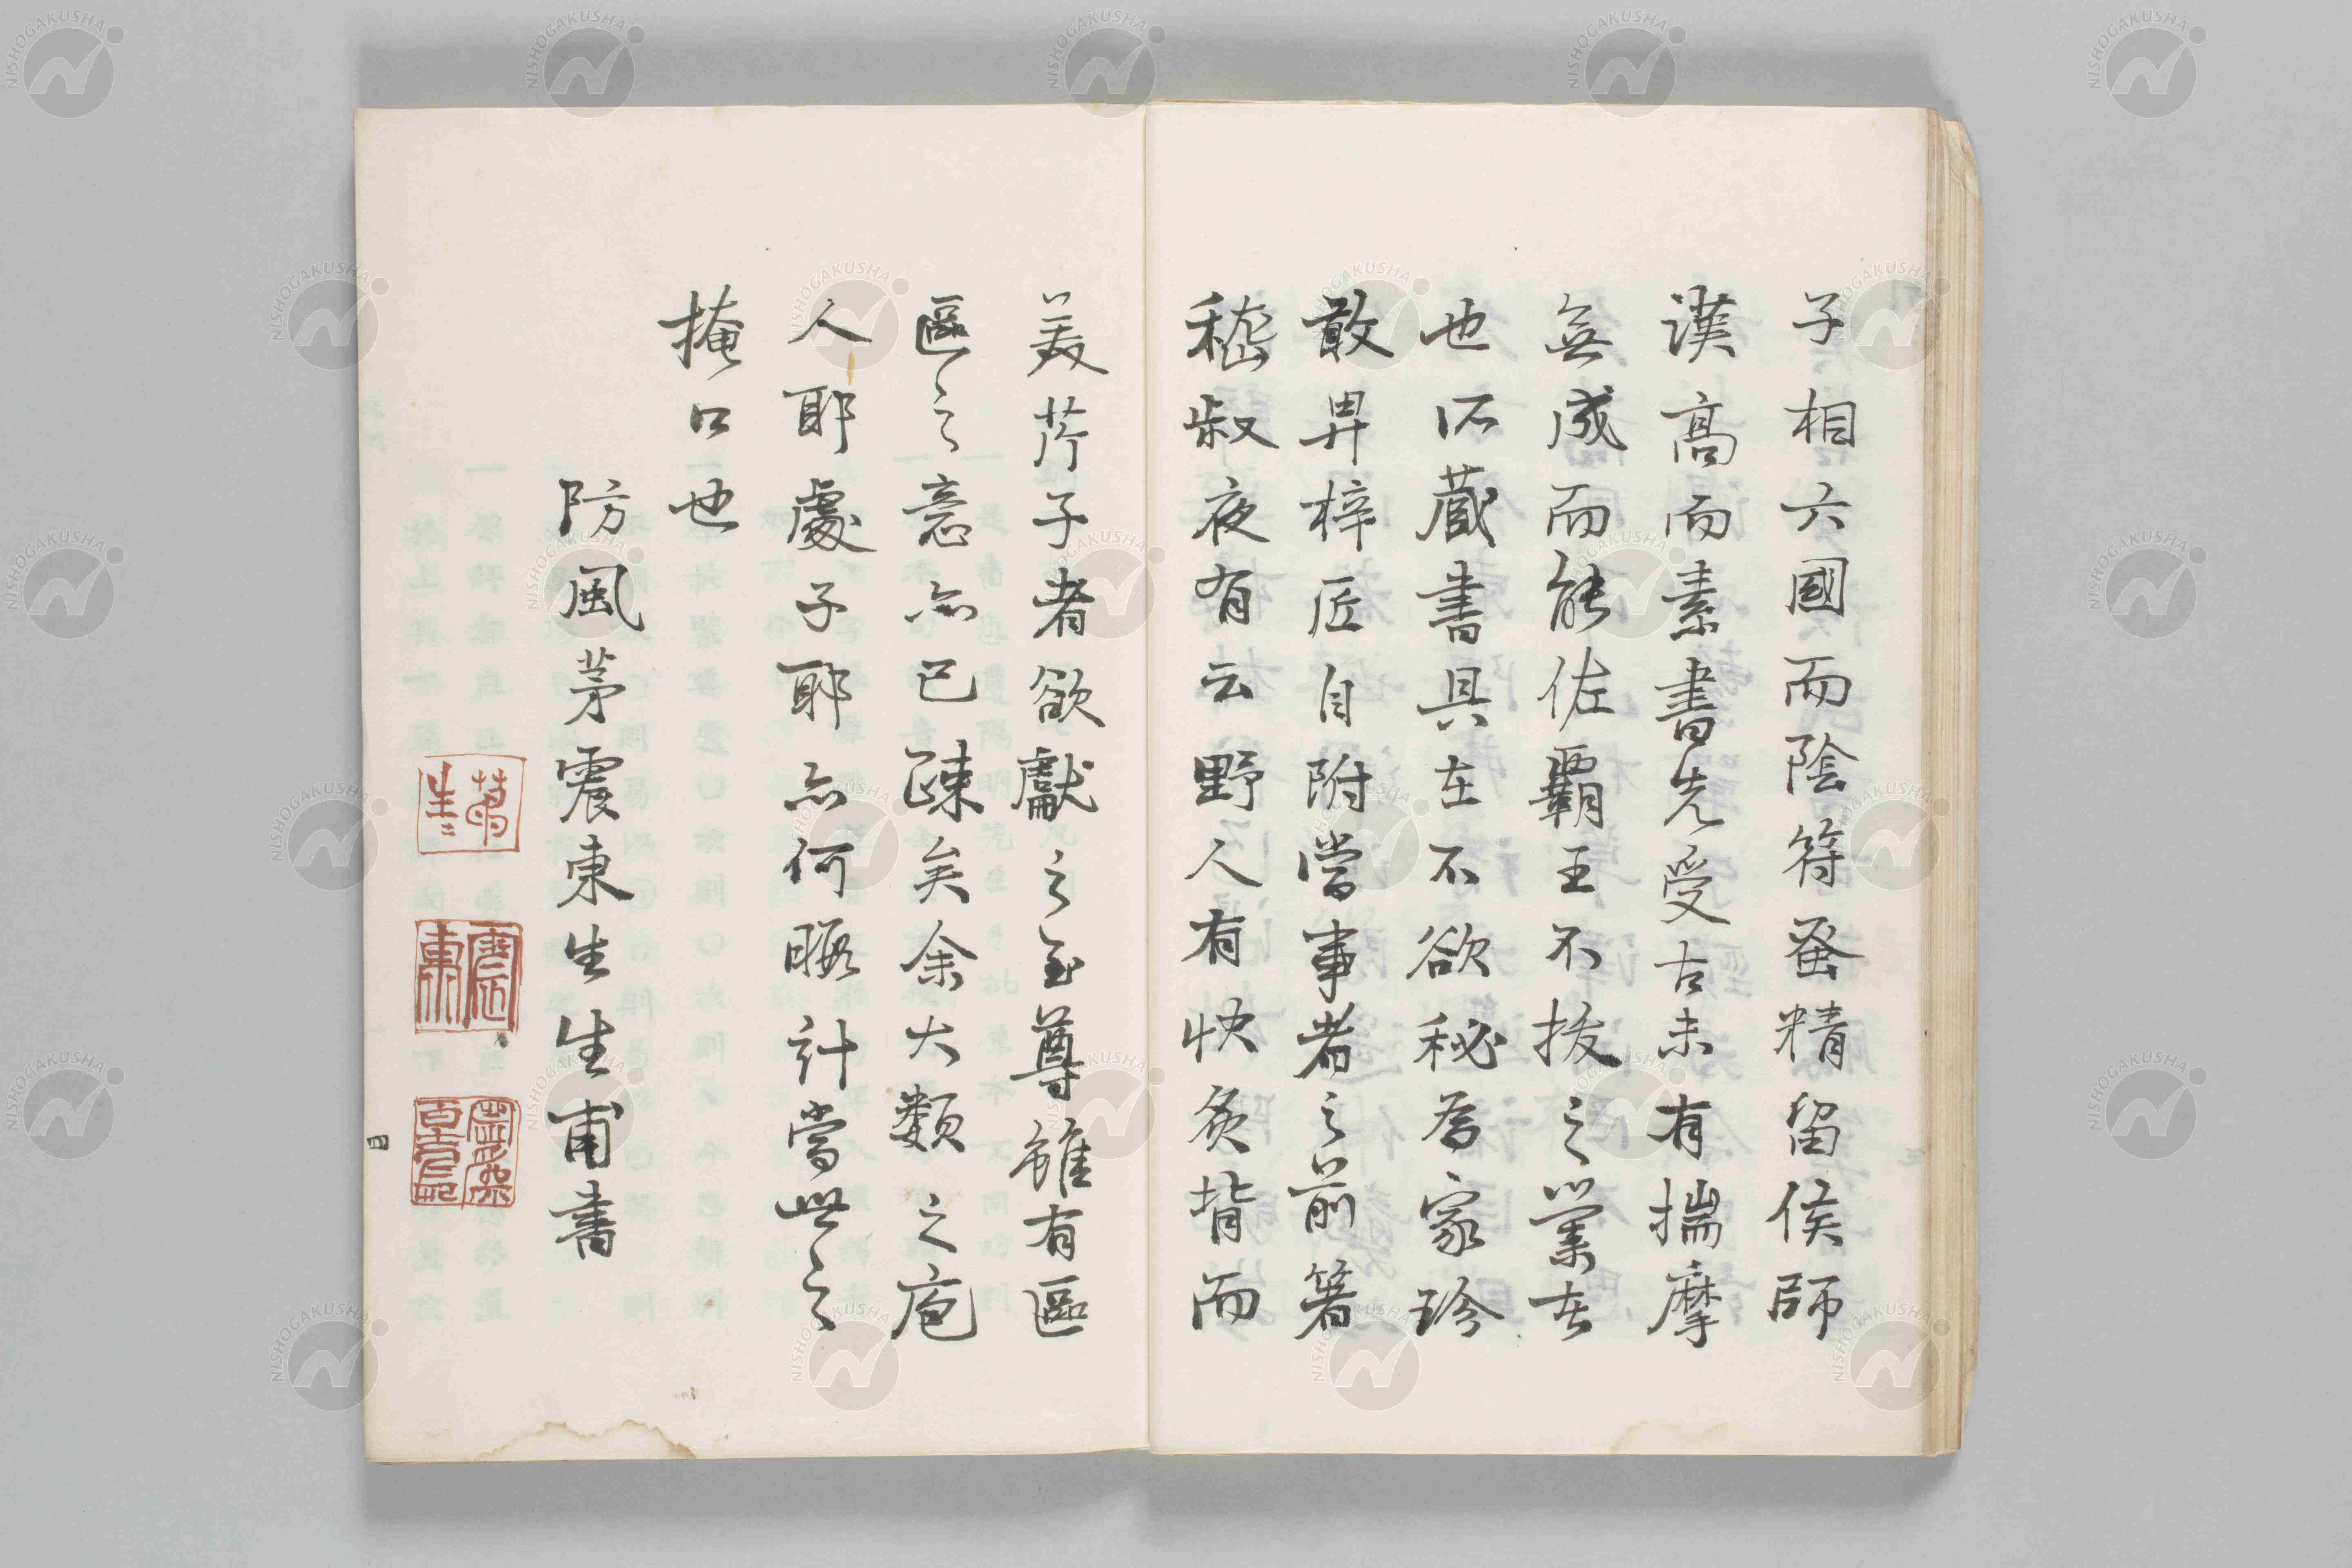 子相六國而陰符蚤精留侯師
漢高而素書先受古未有揣摩
無成而能佐霸王不拔之業者
也所藏書具在不欲秘為家珍
敢畀梓匠自附當事者之前箸
嵇叔夜有云野人有快炙背而
美芹子者欲獻之至尊雖有區
區之意亦已疎矣余大類之庖
人耶處子耶亦何暇計當世之
掩口也
防風茅震東生生甫書
震東
四
NISHOGAKUSHA